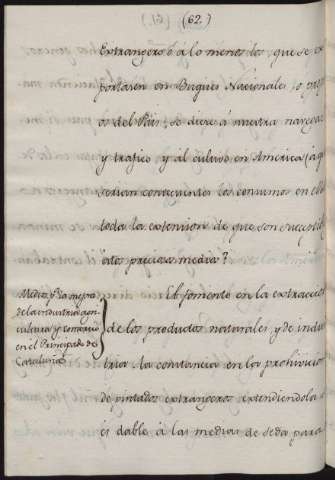 (62.)
Extrangero ó á lo menos los que se ex
portasen en Buques Nacionales, o propi
os del Pais, se diere á nuestra navegac
y trafico, y al cultivo en America (á q
serian consiguientes los consumos en el
toda la extension de que son suscepti
estos precisos medios?
Medios pª. la mejora
de la industria agri
cultura y comercio
en el Principado de
Cataluña.
El fomento en la extraccio
de los productos naturales y de indus
tria: la constancia en los prohivicio
de pintados extrangeros extendiendola
es dable á las medias de seda para